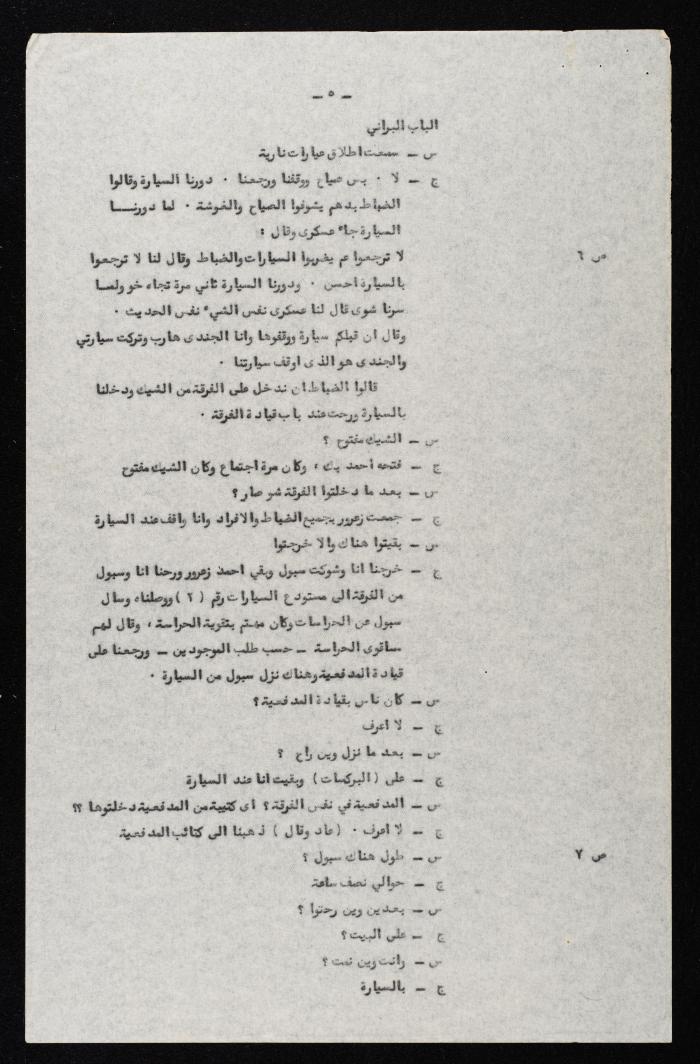 ـ ٥ ـ
الباب البراني
س ـ سمعت اطلاق عيارات نارية
ج ـ لا ٠ بس صياح ووقفنا ورجعنا ٠ دورنا السيارة وقالوا
الضباط بدهم يشوفوا الصياح والغوشة ٠ لما دورنـــا
السيارة جاء عسكرى وقال :
لا ترجعوا عم يضربوا السيارات والضباط وقال لنا لا ترجعوا
ص ٦
بالسيارة احسن ٠ ودورنا السيارة ثاني مرة تجاه خو ولمـا
سرنا شوى قال لنا عسكرى نفس الشيء نفس الحديث ٠
وقال ان قبلكم سيارة ووقفوها وانا الجندى هارب وتركت سيارتي
والجندى هو الذى اوقف سيارتنا ٠
قالوا الضباط ان ندخل على الفرقة من الشيك ودخلنا
بالسيارة ورحت عند باب قيادة الفرقة ٠
س ـ الشيك مفتوح ؟
ج ـ فتحه أحمد بك ، وكان مرة اجتماع وكان الشيك مفتوح
س ـ بعد ما دخلتوا الفرقة شو صار ؟
ج ـ جمعت زعرور بجميع الضباط والافراد وانا واقف عند السيارة
س ـ بقيتوا هناك والا خرجتوا
ج ـ خرجنا انا وشوكت سبول وبقي احمد زعرور ورحنا انا وسبول
من الفرقة الى مستودع السيارات رقم ( ٢ ) ووصلناه وسال
سبول عن الحراسات وكان مهتم بتقوية الحراسة ، وقال لهم
ساقوى الحراسة ـ حسب طلب الموجودين ـ ورجعنا على
قيادة المدفعية وهناك نزل سبول من السيارة ٠
س ـ كان ناس بقيادة المدفعية ؟
ج ـ لا اعرف
س ـ بعد ما نزل وين راح ؟
ج ـ على ( البركسات ) وبقيت انا عند السيارة
س ـ المدفعية في نفس الفرقة ؟ اى كتيبة من المدفعية دخلتوها ؟؟
ج ـ لا اعرف ٠ ( عاد وقال ) ذهبنا الى كتائب المدفعية
س ـ طول هناك سبول ؟
ص ٧
ج ـ حوالي نصف ساعة
س ـ بعدين وين رحتوا ؟
ج ـ على البيت ؟
س ـ وانت وين نمت ؟
ج ـ بالسيارة